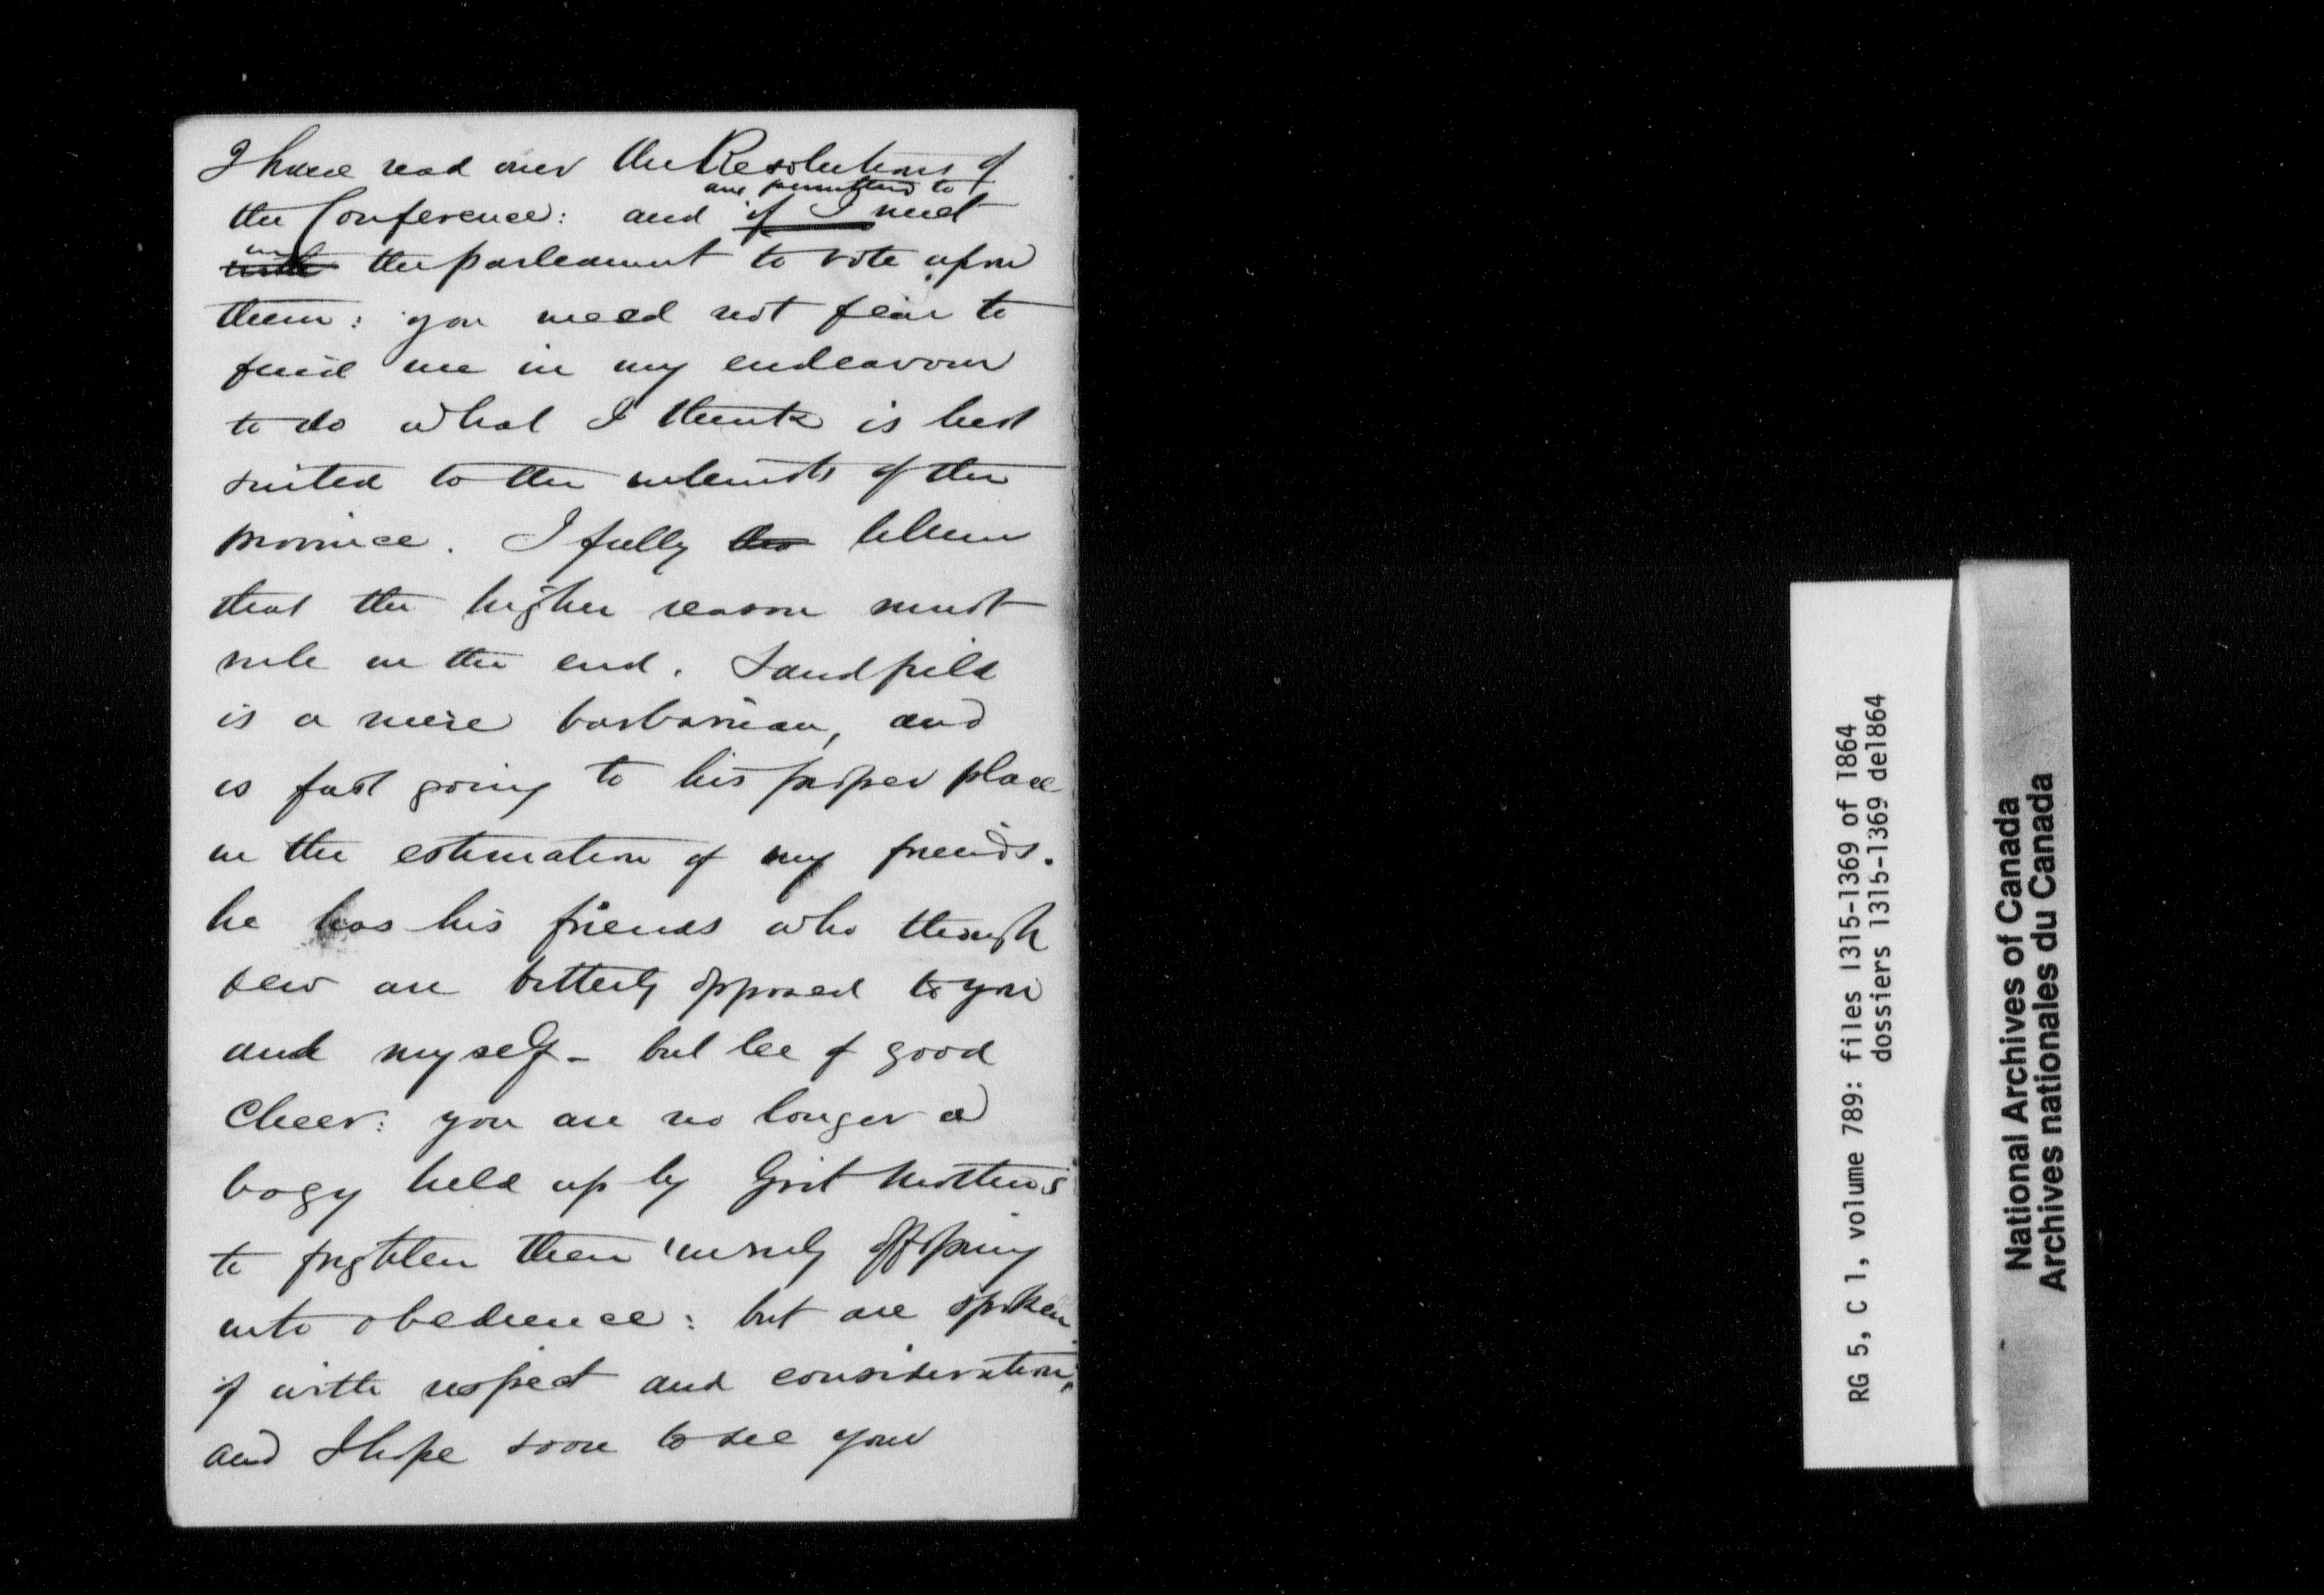 I have read over the Resolutions of
are permitted to
the Conference: and if I meet
in
with the parleament to vote upon
them: you need not fear to
find me in my endeavour
to do what I think is best
suited to the interests of the
province. I fully believe
that the higher reason must
rule in the end. Sandfield
is a mere barbarian, and
is fast going to his proper place
in the estimation of my friends.
he has his friends who though
few are bitterly opposed to you
and myself - but be of good
cheer: you are no longer a
bogy held up by Grit Mothers
to frighten their unruly offspring
into obedience: but are spoken
of with respect and consideration,
and I hope soon to see your
RG 5, C 1, volume 789: files 1315-1369 of 1864
dossiers 1315-1369 de1864
National Archives of Canada
Archives nationales du Canada